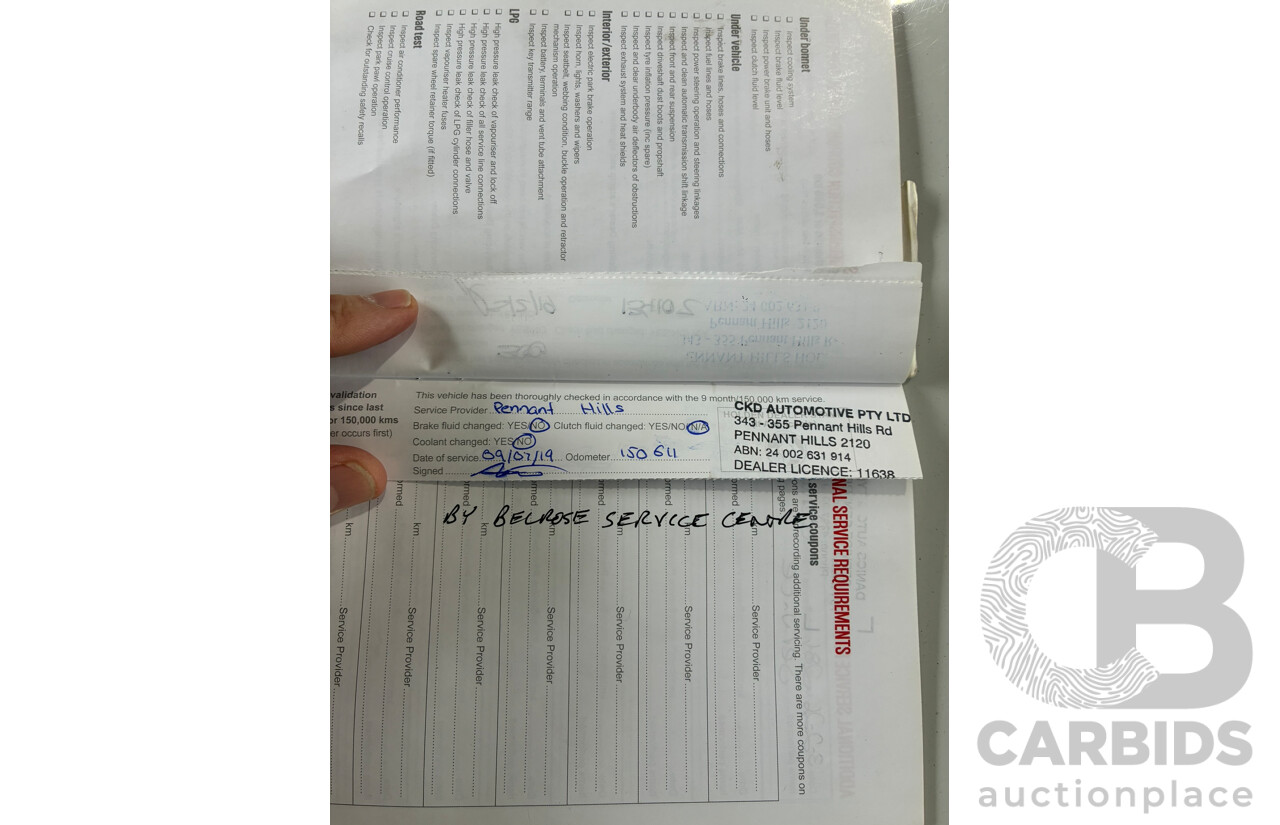 Under bonnet
Inspect cooling system
Inspect brake fluid level
Inspect power brake unit and hoses
Inspect clutch fluid level
Under vehicle
Inspect brake lines, hoses and connections
Inspect fuel lines and hoses
Inspect power steering operation and steering linkages
Inspect and clean automatic transmission shift linkage
Inspect front and rear suspension
Inspect driveshaft dust boots and propshaft
Inspect tyre inflation pressure (inc spare)
Inspect and clear underbody air deflectors of obstructions
Inspect exhaust system and heat shields
Interior/exterior
Inspect electric park brake operation
Inspect horn, lights, washers and wipers
Inspect seatbelt, webbing condition, buckle operation and retractor
mechanism operation
Inspect battery, terminals and vent tube attachment
Inspect key transmitter range
LPG
High pressure leak check of vapouriser and lock off
High pressure leak check of all service line connections
High pressure leak check of filler hose and valve
High pressure leak check of LPG cylinder connections
Inspect vapouriser heater fuses
Inspect spare wheel retainer torque (if fitted)
Road test
Inspect air conditioner performance
Inspect cruise control operation
Inspect park pawl operation
Check for outstanding safety recalls
validation
s since last
or 150,000 kms
er occurs first)
This vehicle has been thoroughly checked in accordance with the 9 month/150,000 km service.
Service Provider Pennant Hills
Brake fluid changed: YES/NO Clutch fluid changed: YES/NO/N/A
Coolant changed: YES/NO
Date of service 09/07/19 Odometer 150 611
Signed
CKD AUTOMOTIVE PTY LTD
343 - 355 Pennant Hills Rd
PENNANT HILLS 2120
ABN: 24 002 631 914
DEALER LICENCE: 11638
BY BELROSE SERVICE CENTRE
NAL SERVICE REQUIREMENTS
service coupons
ons are recording additional servicing. There are more coupons on
pages.
km Service Provider
km Service Provider
km Service Provider
km Service Provider
km Service Provider
km Service Provider
km Service Provider
CB
CARBIDS
auctionplace